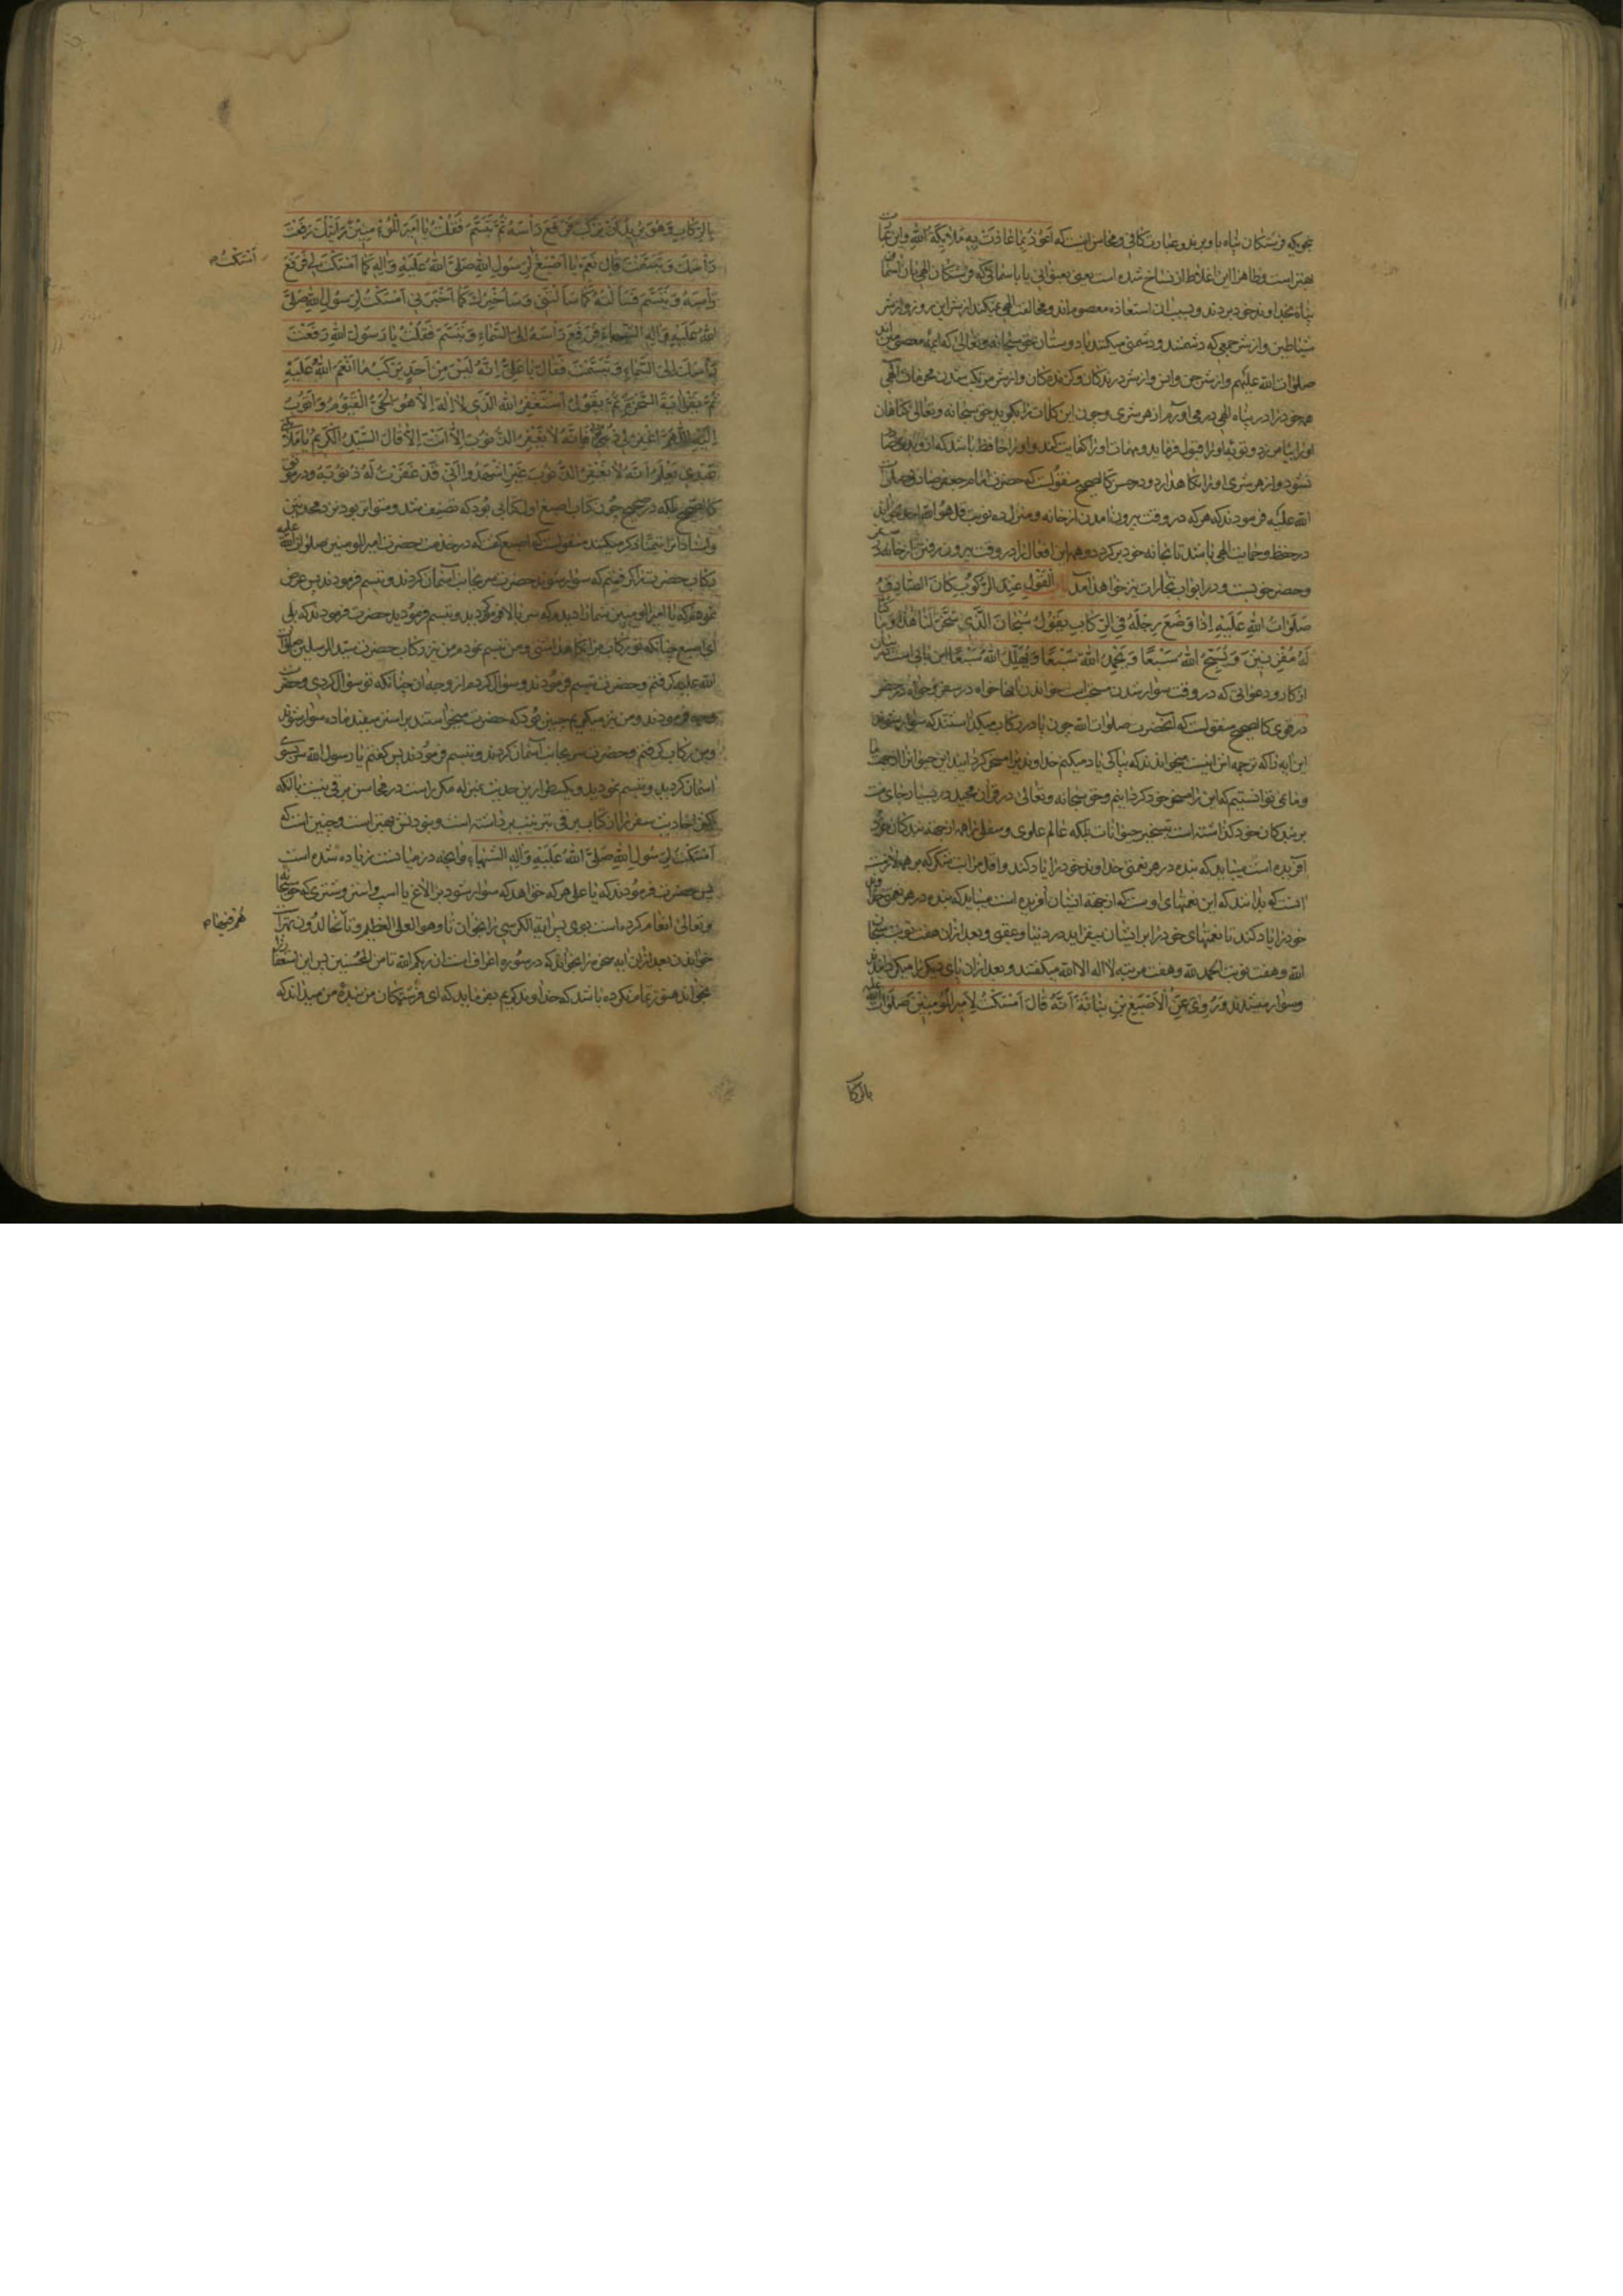 بنحوی که فرشتگان پناه باو بردند و عبارت کافی و محاسن اینست که اعوذ بما عاذت به ملائكة الله و این عبارت
بهتر است و ظاهرا این اغلاط از نساخ شده است یعنی بعنوانی یا باسمائی که فرشتگان الهی بان اسما
پناه بخداوند خود بردند و بسبب ان استعاذه معصوم اند و مخالفت الهی نمیکنند از شر این روز و از شر
شیاطین و از شر جمعی که دشمنند و دشمنی میکنند با دوستان حق سبحانه و تعالی که ائمه معصومین اند
صلوات الله علیهم و از شر جن و انس و از شر درندگان و گزندگان و از شر مرتکب شدن محرمات الهی
همه خود را در پناه الهی در می اورم از هر شری و چون این کلمات را بگوید حق سبحانه و تعالی گناهان
او را بیامرزد و توبه او را قبول فرماید و مهمات او را کفایت کند و او را حافظ باشد که از و بدی صادر
نشود و از هر شری او را نگاه دارد و در حسن کالصحیح منقولست که حضرت امام جعفر صادق صلوات
الله علیه فرمودند که هر که در وقت بیرون امدن از خانه و منزل ده نوبت قل هو الله احد بخواند
در حفظ و حمایت الهی باشد تا بخانه خود برگردد و همه این افعال را در وقت بیرون رفتن از خانه در سفر
و حضر خوبست و در ابواب تجارات نیز خواهد آمد القول عند الركوب كان الصادق
صلوات الله عليه اذا وضع رجله في الركاب يقول سبحان الذي سخر لنا هذا و ما كنا
له مقرنين و يسبح الله سبعا و يحمد الله سبعا و يهلل الله سبعا این بابی است در بیان
اذکار و دعواتی که در وقت سوار شدن مستحب است خواندن انها خواه در سفر و خواه در حضر
در قوی کالصحیح منقولست که آنحضرت صلوات الله چون پا در رکاب میگذاشتند که سوار شوند
این ایه را که ترجمه اش اینست میخواندند که بپاکی یاد میکنم خداوندیرا که مسخر گردانید این حیوانرا از جهت ما
و ما نمی توانستیم که این را مسخر خود گردانیم و حق سبحانه و تعالی در قرآن مجید در بسیار جای منت
بر بندگان خود گذاشته است بتسخیر حیوانات بلکه عالم علوی و سفلی را همه از جهة بندگان خود
آفریده است میباید که بنده در هر نعمتی خداوند خود را یاد کند و اقل مراتب شکر که بر همه لازمست
انست که بدانند که این نعمتهای اوست که از جهة ایشان آفریده است میباید که بنده در هر نعمتی خداوند
خود را یاد کند تا نعمتهای خود را بر ایشان بیفزاید در دنیا و عقبی و بعد از ان هفت نوبت سبحان
الله و هفت نوبت الحمد لله و هفت مرتبه لا اله الا الله میگفتند و بعد از ان پای دیگر را میگردانیدند
و سوار میشدند و روي عن الاصبغ بن نباتة انه قال امسكت لامير المؤمنين صلوات الله عليه
بالركا
بالركاب و هو يريد ان يركب فرفع راسه ثم تبسم فقلت يا امير المؤمنين رايتك رفعت
راسك و تبسمت قال نعم يا اصبغ لرسول الله صلى الله عليه و اله كما امسكت لي فرفع
امسكت صح
راسه و تبسم فسالته كما سالتني و ساخبرك كما اخبرني امسكت لرسول الله صلى
الله عليه و اله الشهباء فرفع راسه الى السماء و تبسم فقلت يا رسول الله رفعت
راسك الى السماء و تبسمت فقال يا علي انه ليس من احد يركب ما انعم الله عليه
ثم يقرا اية السخرة ثم يقول استغفر الله الذي لا اله الا هو الحي القيوم و اتوب
اليه اللهم اغفر لي ذنوبي فانه لا يغفر الذنوب الا انت الا قال السيد الكريم يا ملائكتي
عبدي يعلم انه لا يغفر الذنوب غيري اشهدوا اني قد غفرت له ذنوبه و در موثق
کالصحیح بلکه در صحیح چون کتاب اصبغ اول کتابی بود که تصنیف شد و متواتر بود نزد محدثین
و اسناد را تیمنا ذکر میکنند منقولست که اصبغ گفت که در خدمت حضرت امیر المومنین صلوات الله علیه
رکاب حضرت را گرفتم که سوار شوند حضرت سر بجانب آسمان کردند و تبسم فرمودند پس عرض
نمودم که یا امیر المومنین شما را دیدم که سر بالا فرمودید و تبسم فرمودید حضرت فرمودند که بلی
ای اصبغ چنانکه تو رکاب مرا نگاه داشتی و من تبسم نمودم من نیز رکاب حضرت سید المرسلین صلوات
الله علیه گرفتم و حضرت تبسم فرمودند و سؤال کردم از وجه ان چنانکه تو سؤال کردی و حضرت
وجه فرمودند و من نیز میگویم چنین بود که حضرت میخواستند بر استر سفید ماده سوار شوند
و من رکاب گرفتم و حضرت سر بجانب آسمان کردند و تبسم فرمودند پس گفتم یا رسول الله سر بسوی
اسمان کردید و تبسم نمودید و یکسطر از ین حدیث بمنزله مکرر است در محاسن برقی نیست با آنکه
احادیث سفر را از کتاب برقی بترتیب برداشته است و نبودنش بهتر است و چنین است که
امسكت لرسول الله صلى الله عليه و اله الشهباء و آنچه در میانست زیاده شده است
پس حضرت فرمودند که یا علی هر که خواهد که سوار شود بر الاغ یا اسب و استر و شتری که حق سبحانه
و تعالی انعام کرده است بوی پس ایة الکرسی را بخوان تا و هو العلی العظیم و تا خالدون بهتر است
هم فیها صح
خواندن بعد از ان ایه سخره را بخواند که در سوره اعراف است ان ربکم الله تا من المحسنین پس این استغفار را
بخواند هنوز تمام نکرده باشد که خداوند کریم می فرماید که ای فرشتگان من بنده من میداند که